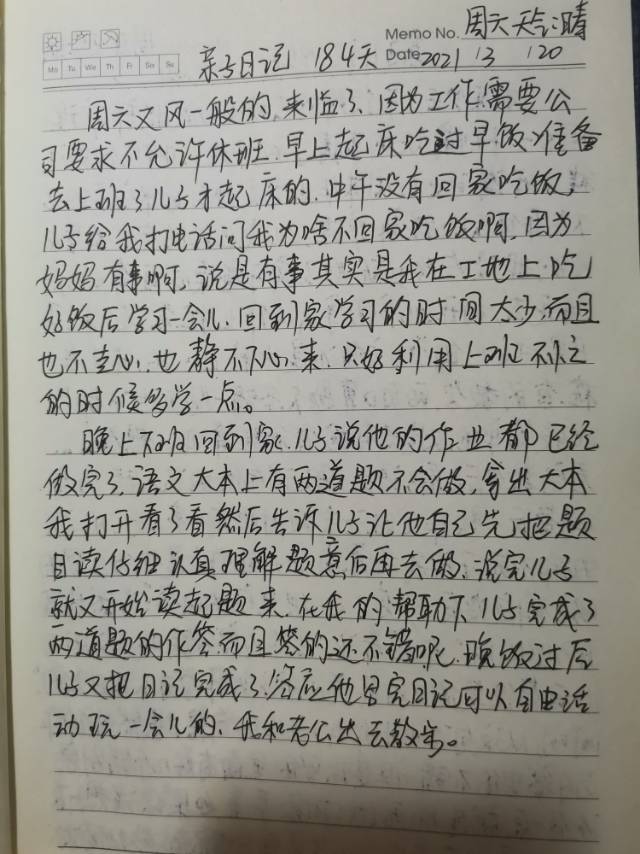 Memo No. 周六 天气:晴
Mo Tu We Th Fr Sa Su
亲子日记 184天 Date 2021 3 20
周六又风一般的来临了、因为工作需要公
司要求不允许休班.早上起床吃过早饭准备
去上班了儿子才起床的.中午没有回家吃饭,
儿子给我打电话问我为啥不回家吃饭啊,因为
妈妈有事啊,说是有事其实是我在工地上吃
好饭后学习一会儿.回到家学习的时间太少.而且
也不走心.也静不下心来.只好利用上班不忙
的时候多学一点。
晚上下班回到家.儿子说他的作业都已经
做完了,语文大本上有两道题不会做,拿出大本
我打开看了看然后告诉儿子让他自己先把题
目读仔细认真理解题意后再去做.说完儿子
就又开始读起题来.在我的帮助下儿子完成了
两道题的作答而且答的还不错呢.晚饭过后
儿子又把日记完成了.答应他写完日记可以自由活
动玩一会儿的,我和老公出去散步。